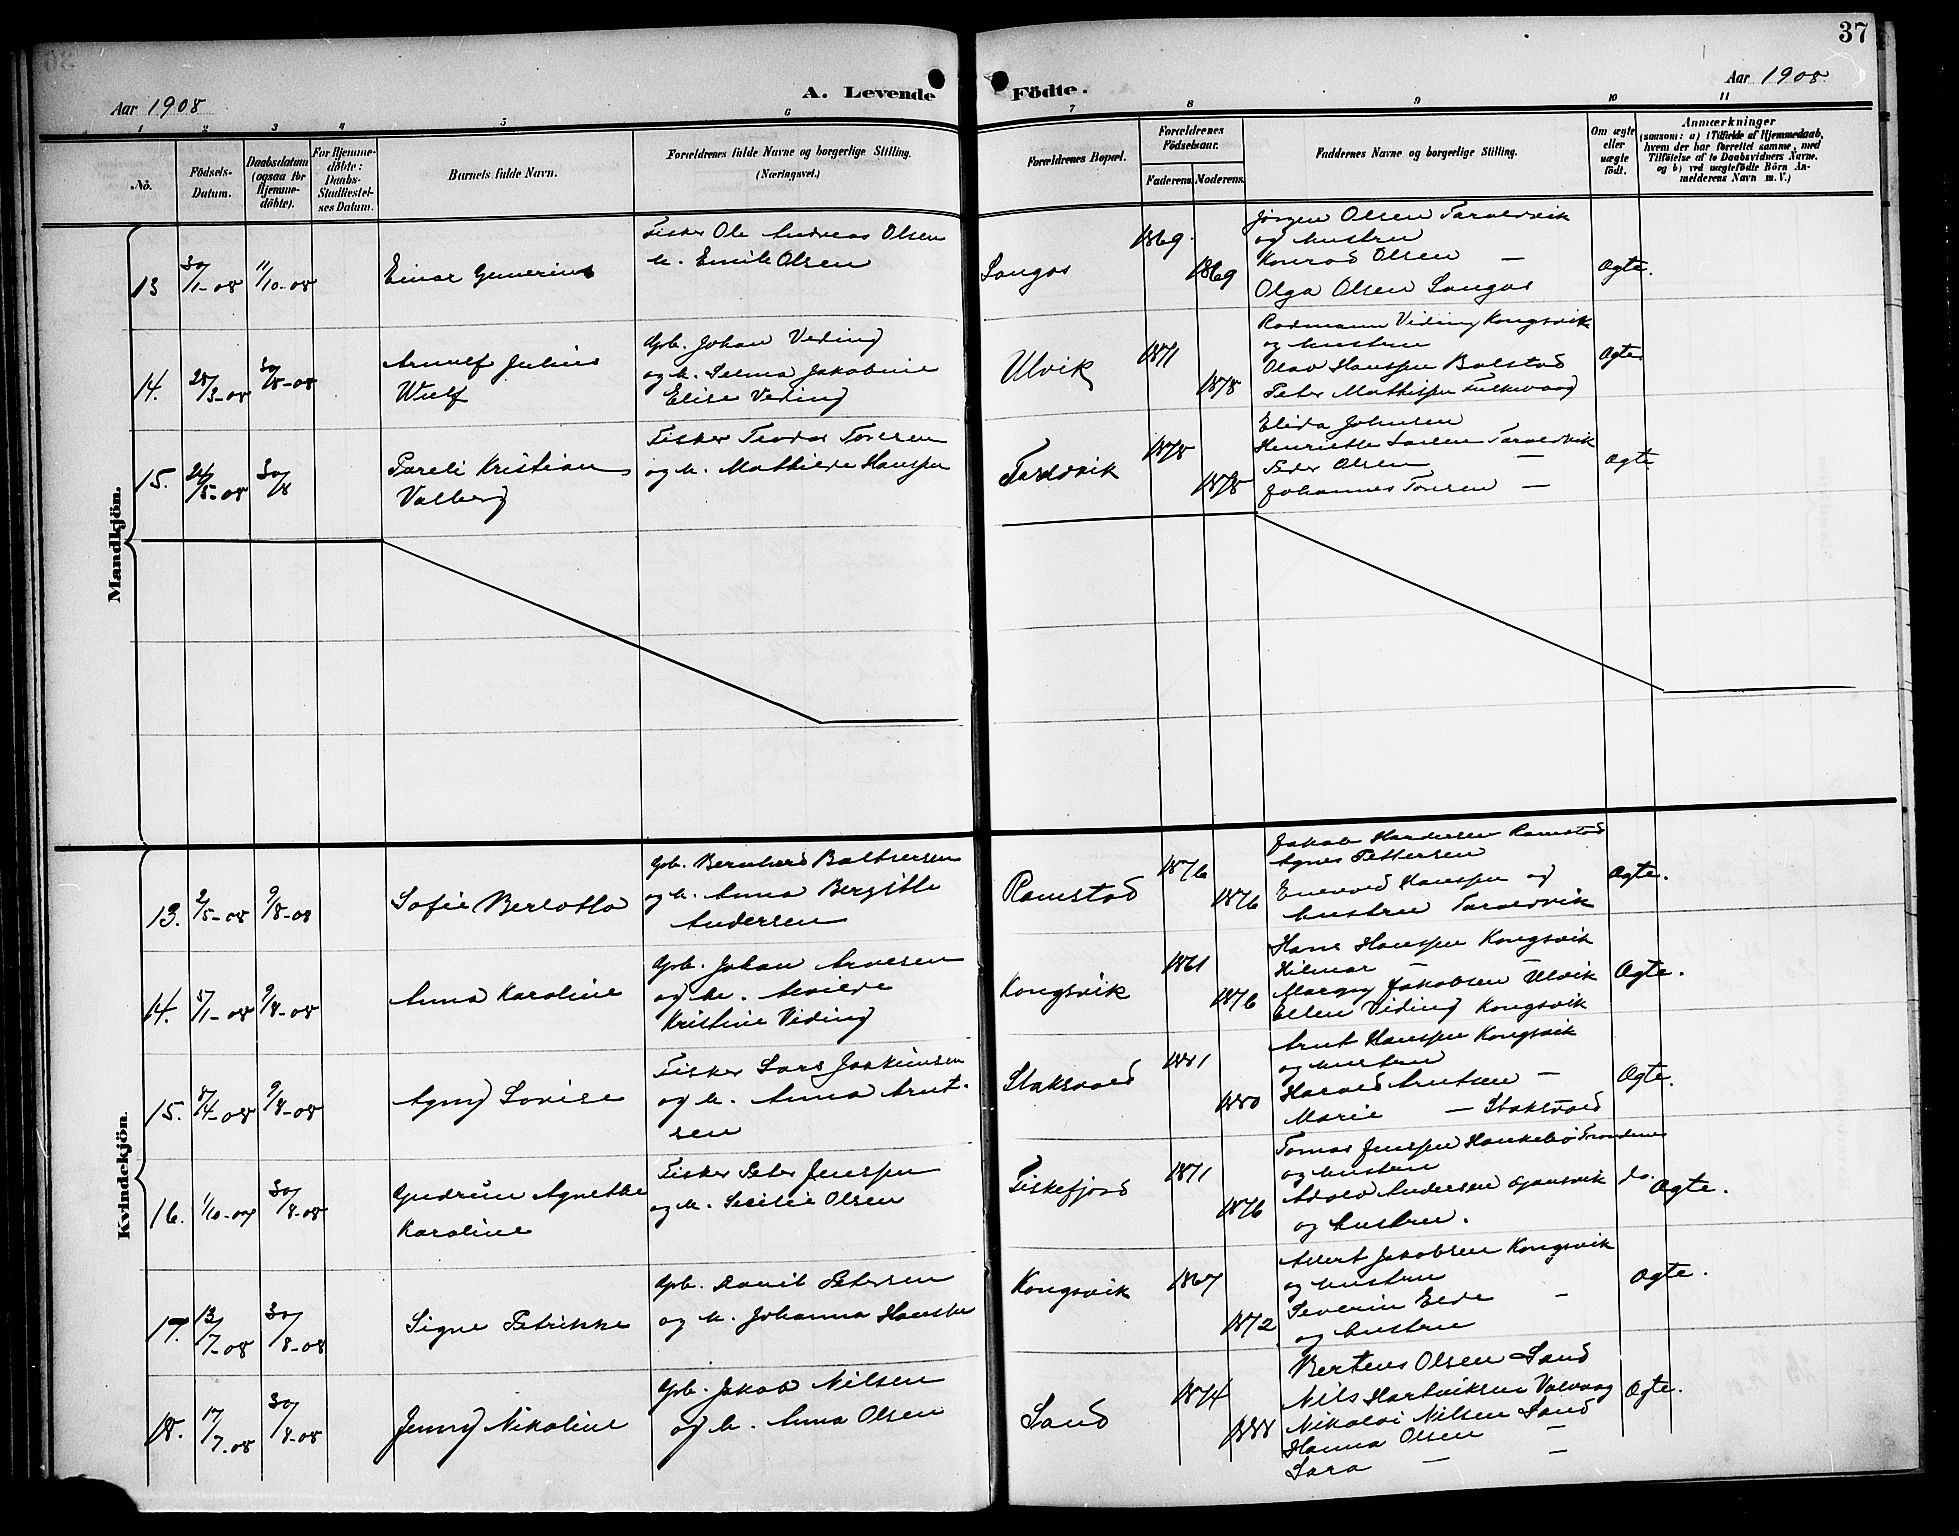 37
Aar 1908
A. Levende Födte.
Aar 1908
1 2 3 4 5 6 7 8 9 10 11
No.
Födsels-Datum.
Daabsdatum (ogsaa for Hjemme-döbte).
For Hjemme-döbte: Daabs-Stadfæstel-ses Datum.
Barnets fulde Navn.
Forældrenes fulde Navne og borgerlige Stilling.
(Næringsvei.)
Forældrenes Bopæl.
Forældrenes Födselsaar.
Faderens. Moderens.
Faddernes Navne og borgerlige Stilling.
Om ægte eller uægte födt.
Anmærkninger
(saasom: a) i Tilfælde af Hjemmedaab,
hvem der har forrettet samme, med
Tilföielse af to Daabsvidners Navne.
og b) ved uægtefödte Börn An-
melderens Navn m. V.)
Mandkjön.
13 30/1-08 11/10-08
Einar
Fisker Ole Andreas Olsen
h. Emilie Olsen
Sangas
1869
1869
Jörgen Olsen Taraldvik
og hustru
Konrad Olsen —
Olga Olsen Sangas
Ægte.
14. 28/3-08 30/8-08
Arnulf Julius
Wulf
Gbr. Johan Veding
og h. Selma Jakobine
Elise Veding
Ulvik
1871
1878
Rodmann Viding Kongsvik
og hustru
Olav Hanssen Bolstad
Peter Mathissen
Ægte
15. 24/5-08 30/8
Pareli Kristian
Valberg
Fisker Teodor Toresen
og h. Mathilde Hanssen
1878
1878
Elida Johnsen
Henriette Taraldvik
Peder Olsen —
Johannes Toresen —
Ægte
Kvindekjön.
13. 2/5-08 9/8-08
Sofie Berlotta
Gbr. Bernhard Baltsersen
og h. Anna Bergitte
Andersen
Ramstad
1876
1876
Jakob Ramstad
Agnes Pettersen
Enevold Hanssen og
hustru Taraldvik
Ægte.
14. 5/1-08 9/8-08
Anna Karoline
Gbr. Johan Arvesen
og h. Alvilde
Kristine Viding
Kongsvik
1861
1876
Hans Hanssen Kongsvik
Hilmar —
Margny Jakobsen Ulvik
Ellen Viding Kongsvik
Ægte.
15. 8/4-08 9/8-08
Agny Lovise
Fisker Lars Joakimsen
og h. Anna Arnt-
sen
Staksvold
1881
1880
Arnt Hanssen Kongsvik
og hustru
Harald Arntsen —
Marie — Staksvold
Ægte.
16. 1/10-07 30/8-08
Gudrun Agnethe
Karoline
Fisker Peter Jenssen
og h. Secilie Olsen
Fiskefjord
1871
1876
Tomas Jenssen Haukebö Trondenes
og hustru
Adolf Andersen Gausvik do.
og hustru.
Ægte.
17. 13/7-08 30/8-08
Signe Petrikke
Gbr. Daniel Petersen
og h. Johanna Hanssen
Kongsvik
1867
1872
Albert Jakobsen Kongsvik
og hustru
Severin Elde —
og hustru
Ægte.
18. 17/7-08 30/8-08
Jenny Nikoline
Gbr. Jakob Nilsen
og h. Anna Olsen
Sand
1874
1888
Berteus Olsen Sand
Nils Hartviksen Valvaag
Nikolai Nilsen Sand
Hanna Olsen —
Sara — —
Ægte.